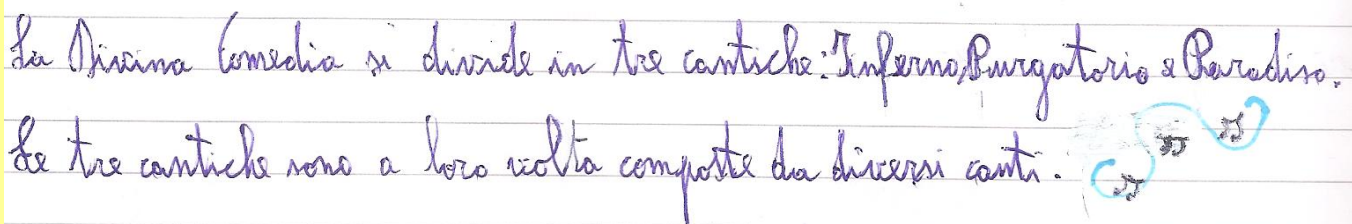 La Divina Comedia si divide in tre cantiche: Inferno, Purgatorio e Paradiso.
Le tre cantiche sono a loro volta composte da diversi canti.